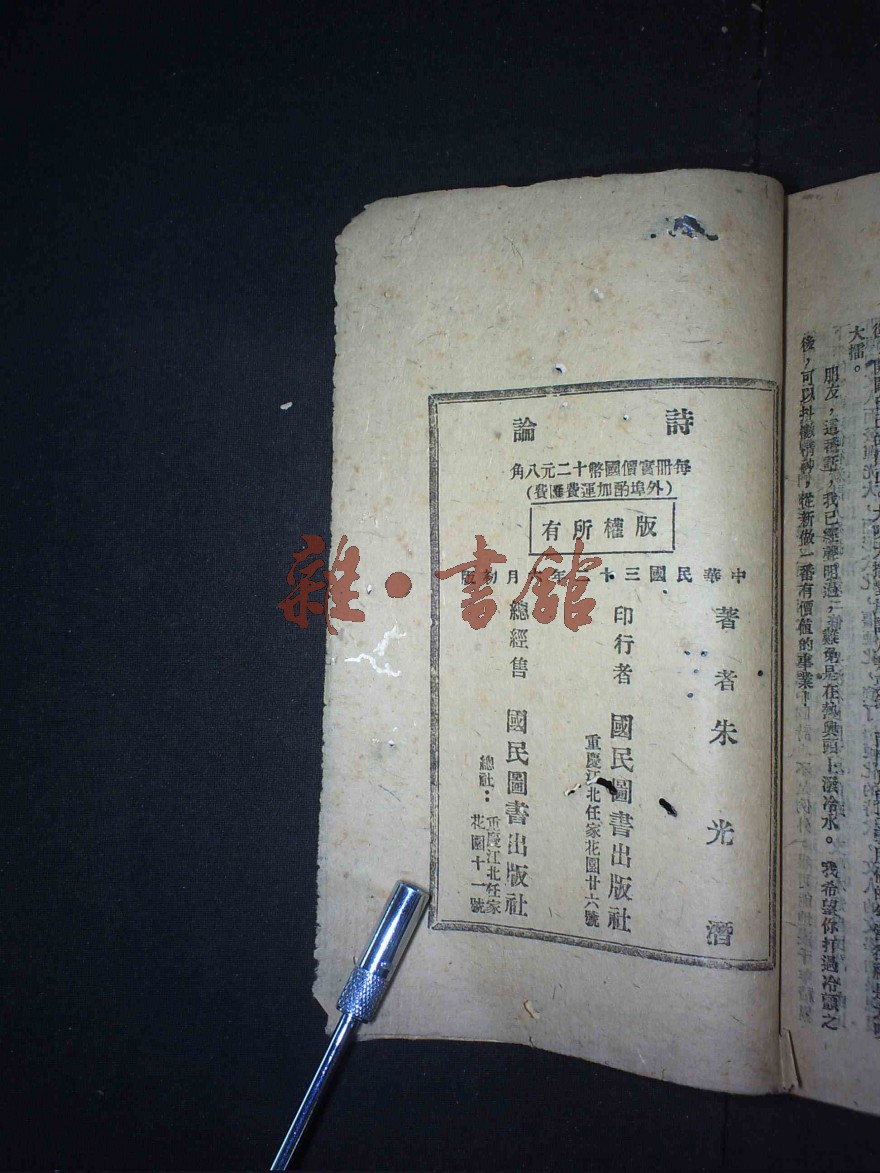 詩論
每冊實價國幣十二元八角
(外埠酌加運費匯費)
版權所有
中華民國三十二年六月初版
著者朱光潛
印行者 國民圖書出版社
重慶江北任家花園廿六號
總經售 國民圖書出版社
總社：重慶江北任家
花園十一號
雜·書館
大擂。
朋友，這番話，我已經聲明過，難免是在熱興頭上潑冷水。我希望你打過冷顫之
後，可以抖擻精神，從新做一番有價值的事業！